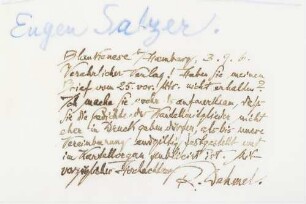 Eugen Salzer.
Blankenese-Hamburg, 3. 9. 6.
Verehrlicher Verlag! Haben Sie meinen
Brief vom 25. vor. Mts. nicht erhalten?
Ich mache Sie noch aufmerksam, daß
Sie die Gedichte der nicht
eher in Druck geben dürfen, als bis unsre
Vereinbarung endgültig festgestellt und
im ist. Mit
vorzüglicher Hochachtung
R. Dehmel.